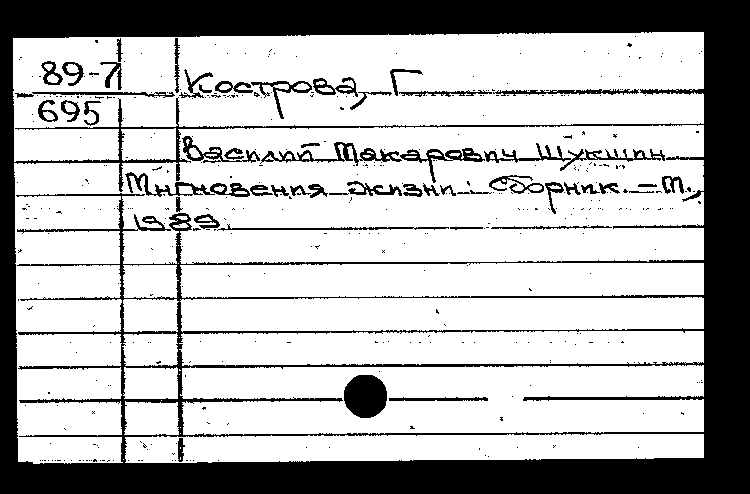 89-7 Кострова, Г
695
Василий Макарович Шукшин
Мгновения жизни: Сборник. – М.,
1989.